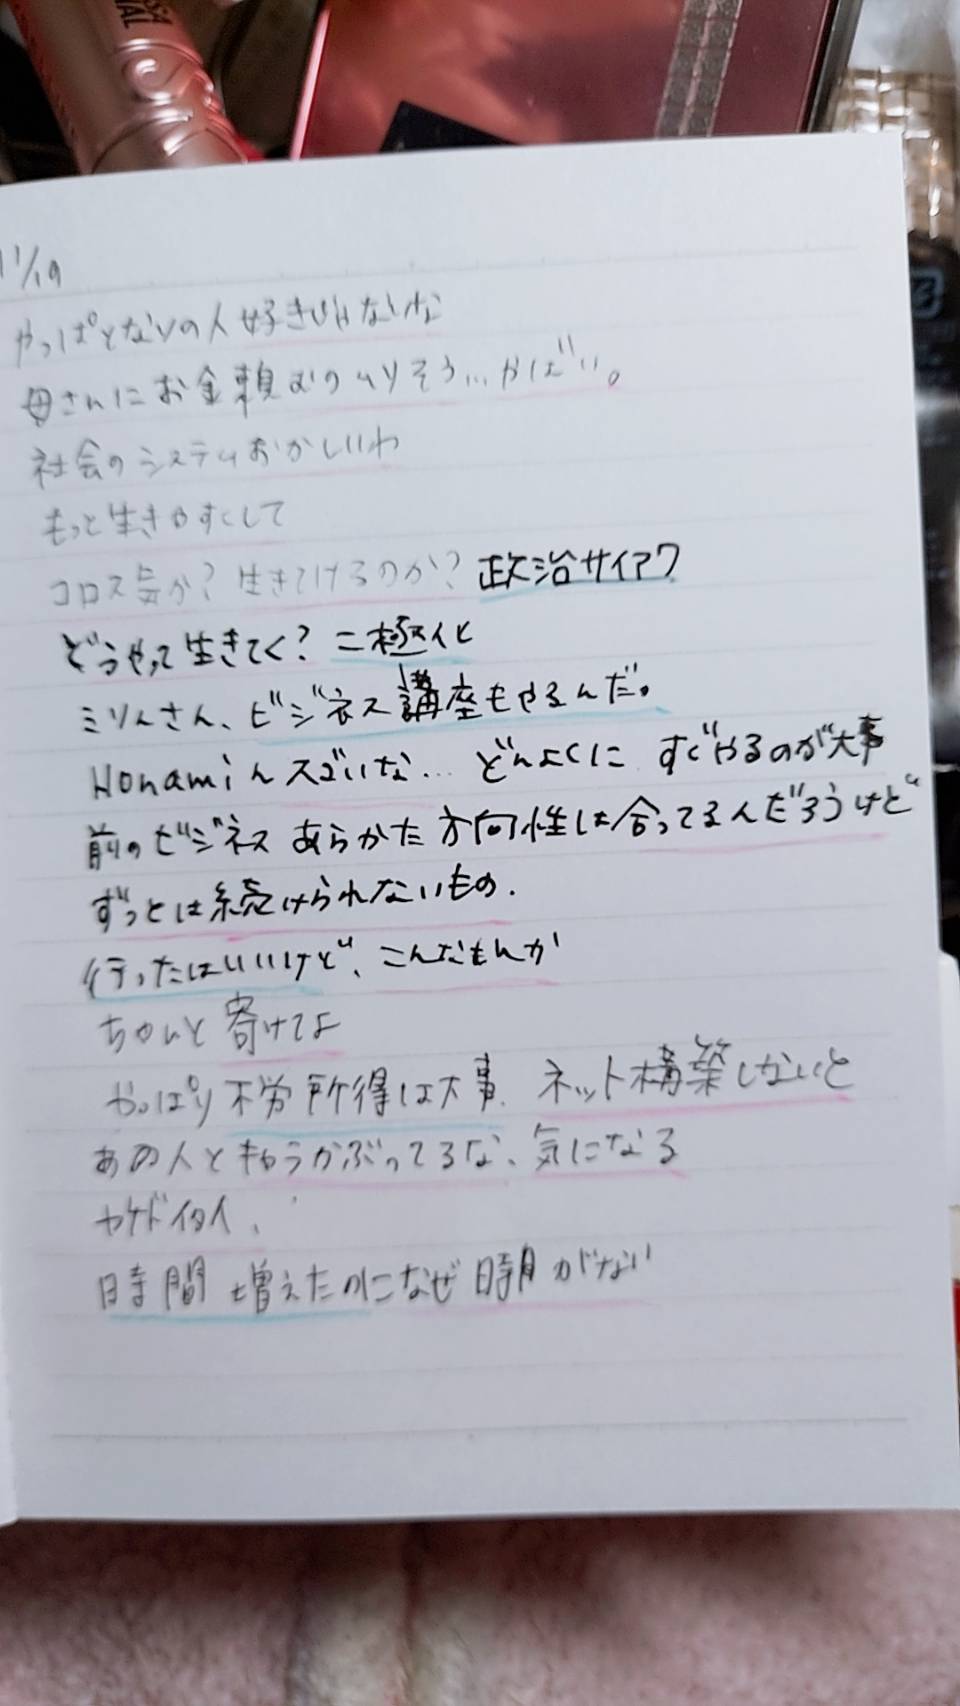 11/19
やっぱとなりの人好きじゃないな
母さんにお金頼むのムリそう…やばい。
社会のシステムおかしいわ
もっと生きやすくして
コロス気か?生きてけるのか?政治サイアク
どうやって生きてく?二極化
ミリんさん、ビジネス講座もやるんだ。
Honamiんスゴいな… どんよくに すぐやるのが大事
前のビジネス あらかた方向性は合ってるんだろうけど
ずっとは続けられないもの.
行ったはいいけど、こんなもんか
ちゃんと寄けてよ
やっぱり不労所得は大事. ネット構築しないと
あの人とキャラかぶってるな、気になる
ヤケドイタイ、
時間増えたのになぜ時間がない